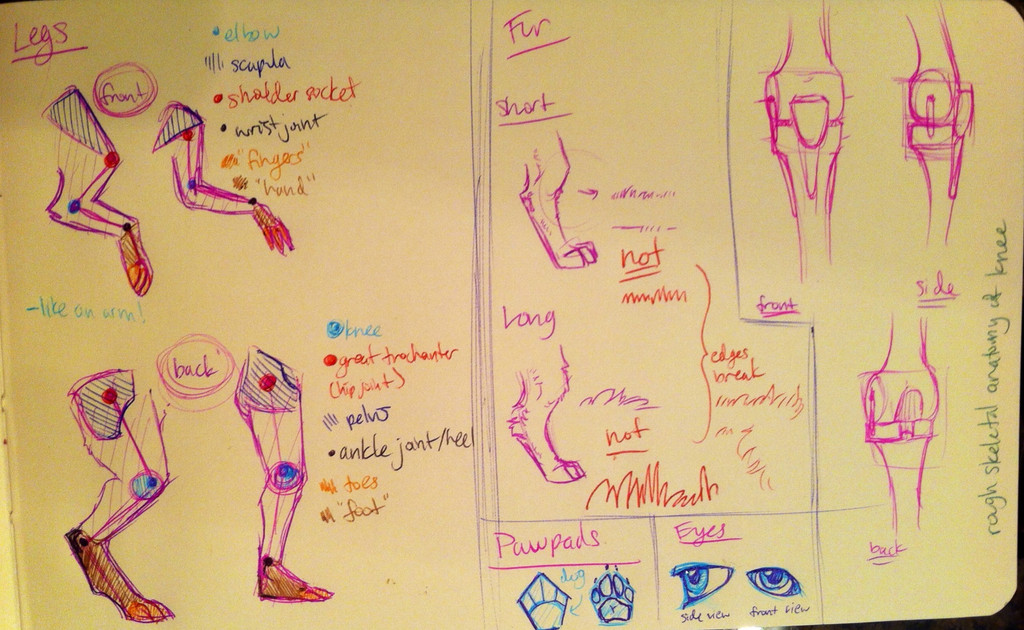 Legs
front
elbow
scapula
sholder socket
wrist joint
"fingers"
"hand"
-like an arm!
back
knee
great trochanter
(hip joint)
pelvis
ankle joint/heel
toes
"foot"
Fur
short
not
Long
not
edges
break
Pawpads
dog
Eyes
side view
front view
front
side
back
rough skeletal anatomy of knee